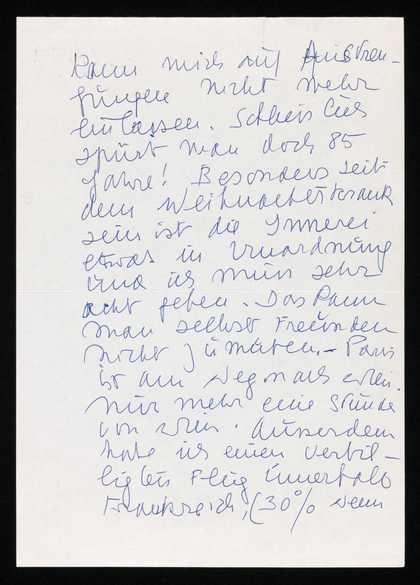 kann mich auf Anstren-
gungen nicht mehr
einlassen. Schliesslich
spürt man doch 85
Jahre! Besonders seit
dem Weihnachtskrank
sein ist die Innerei
etwas in Unordnung
und ich muss sehr
acht geben. Das kann
man selbst Freunden
nicht zumuten. – Paris
ist am Weg nach Wien.
Nur mehr eine Stunde
von Wien. Ausserdem
habe ich einen verbil-
ligten Flug innerhalb
Frankreich, (30% wenn